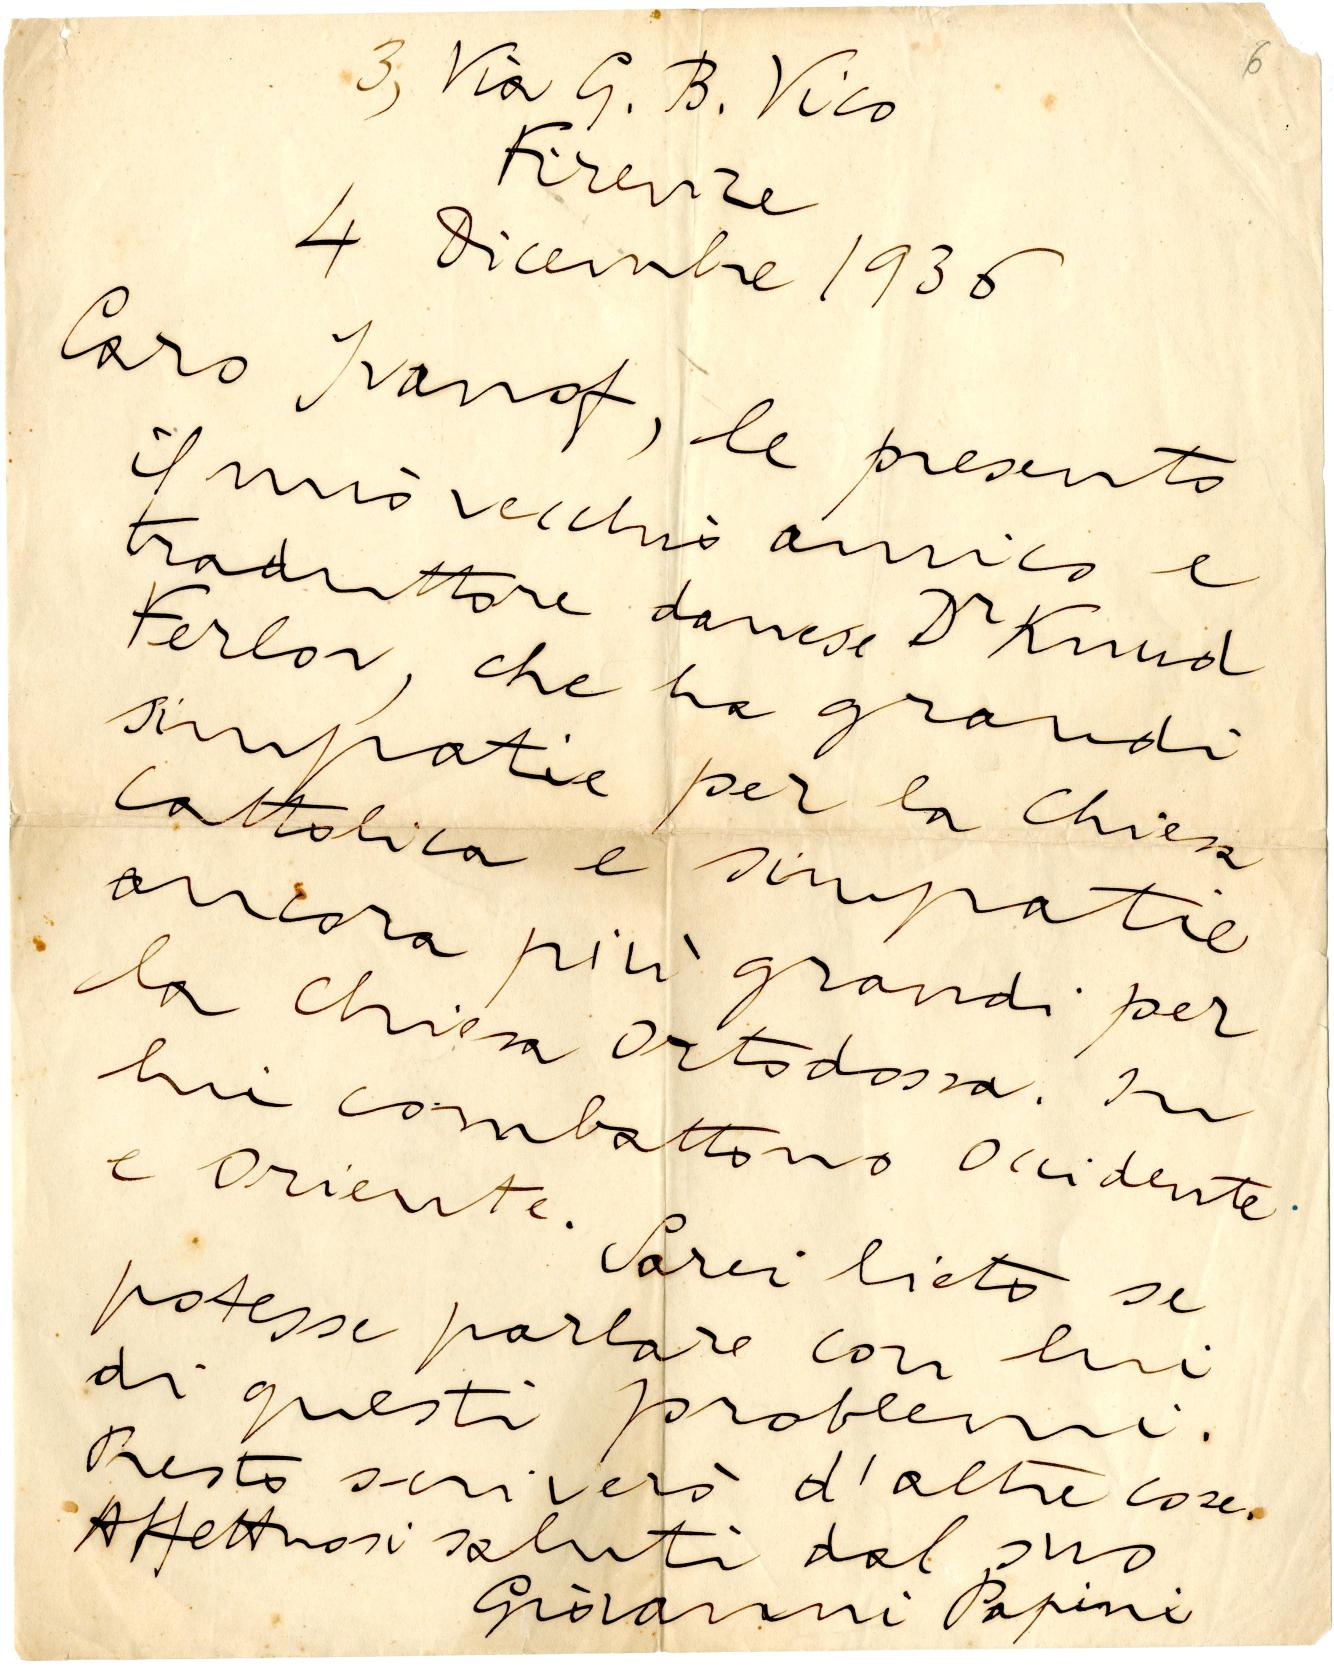 6
3, Via G. B. Vico
Firenze
4 Dicembre 1936
Caro Ivanof, le presento
il mio vecchio amico e
traduttore danese Dr Knud
Ferlov, che ha grandi
simpatie per la Chiesa
Cattolica e simpatie
ancora più grandi per
la Chiesa Ortodossa. In
lui combattono Occidente
e Oriente. Sarei lieto se
potesse parlare con lui
di questi problemi.
Presto scriverò d'altre cose.
Affettuosi saluti dal suo
Giovanni Papini